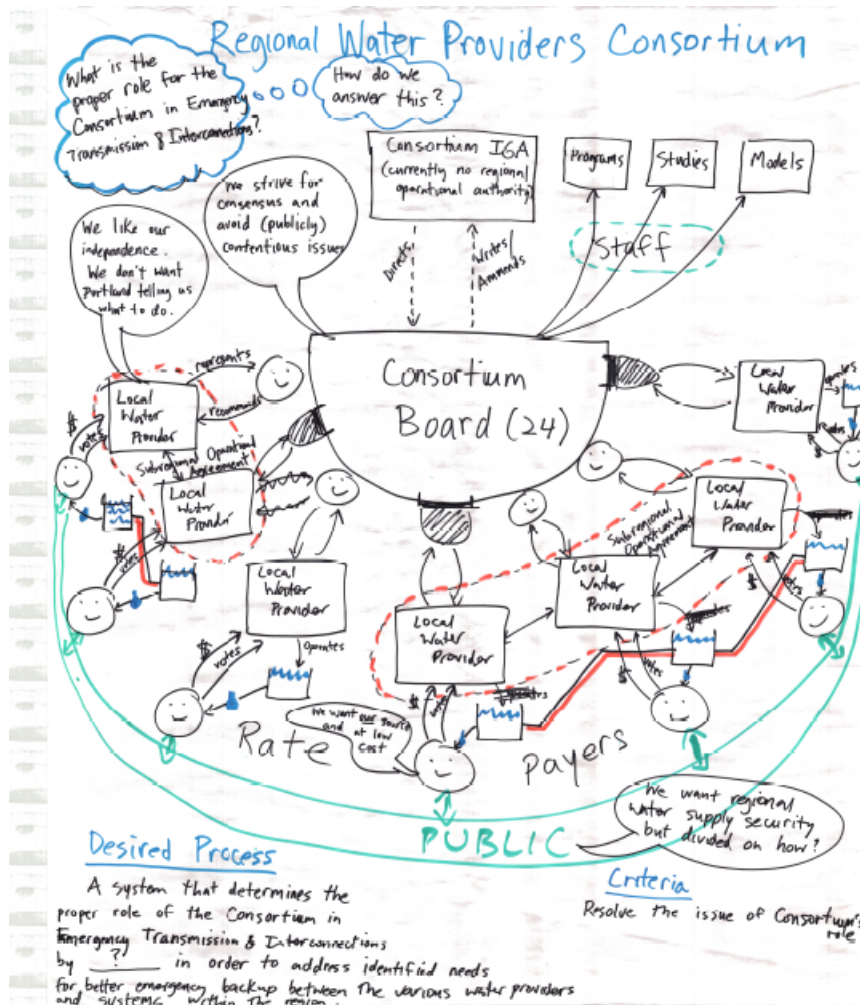 Regional Water Providers Consortium
What is the
proper role for the
Consortium in Emergency
Transmission & Interconnections?
How do we
answer this?
Consortium IGA
(currently no regional
operational authority)
Programs
Studies
Models
Staff
We strive for
consensus and
avoid (publicly)
contentious issues
We like our
independence.
We don't want
Portland telling us
what to do.
Directs
Writes/
Ammends
Consortium
Board (24)
represents
recommends
Local
Water
Provider
$
votes
Subregional Operational
Agreement
Local
Water
Provider
$
votes
Local
Water
Provider
$
votes
Operates
Local
Water
Provider
operates
$
votes
Local
Water
Provider
$
votes
Subregional
Operational
Agreement
Local
Water
Provider
$
votes
Local
Water
Provider
Rate
Payers
We want our source
and at low
cost
PUBLIC
We want regional
water supply security
but divided on how?
Desired Process
A system that determines the
proper role of the Consortium in
Emergency Transmission & Interconnections
by ___?___ in order to address identified needs
for better emergency backup between the various water providers
and systems within the region.
Criteria
Resolve the issue of Consortium's
role